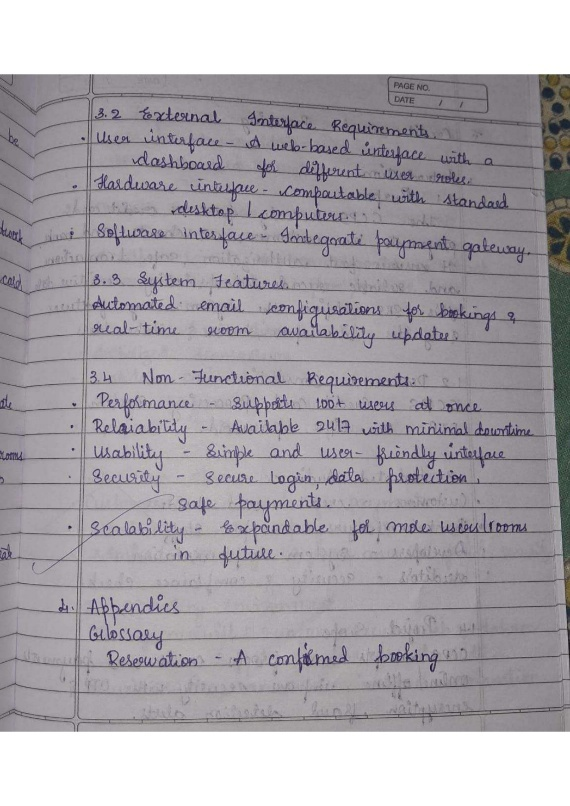 PAGE NO.
DATE / /
3.2 External Interface Requirements.
be
• User interface - A web-based interface with a
dashboard for different user roles.
• Hardware interface - compaitable with standard
desktop / computers.
• Software interface - Integrate payment gateway.
3.3 System Features.
Automated email configurations for bookings &
real-time room availability updates.
3.4 Non-Functional Requirements.
• Performance - Supports 100+ users at once
• Relqiability - Available 24/7 with minimal downtime
rooms
• Usability - Simple and user-friendly interface
• Security - Secure Login, data protection,
safe payments.
• Scalability - Expandable for more users/rooms
in future.
4. Appendics
Glossary
Reservation - A confirmed booking